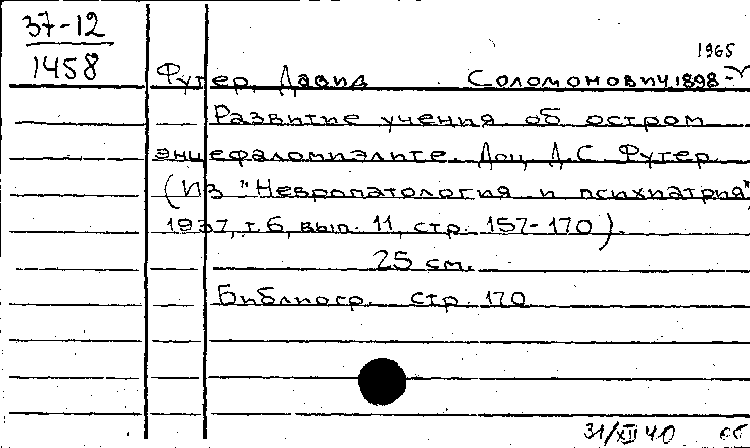 37-12
1458
1965
Футер, Давид Соломонович, 1898-
Развитие учения об остром
энцефаломиэлите. Доц. Д.С Футер
(Из "Невропатология и психиатрия",
1937, т. 6, вып. 11, стр. 157-170).
25 см.
Библиогр. стр. 170
31/XII 40 сс